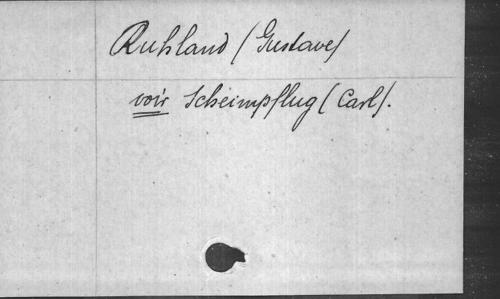 Ruhland (Gustave)
voir Scheimpflug (Carl).